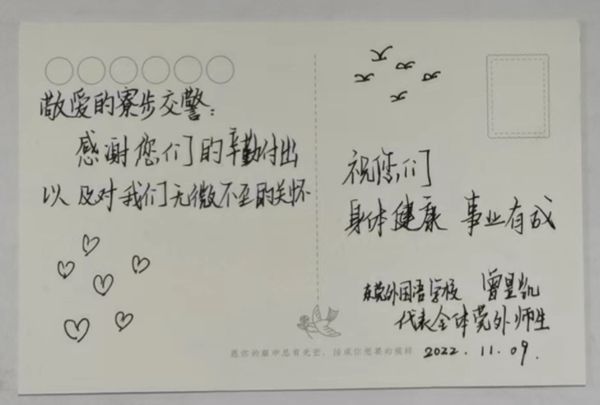 敬爱的寮步交警：
感谢您们的辛勤付出
以及对我们无微不至的关怀
祝您们
身体健康 事业有成
东莞外国语学校 曾星凯
代表全体莞外师生
2022.11.09.
愿你的眼中总有光芒，活成你想要的模样